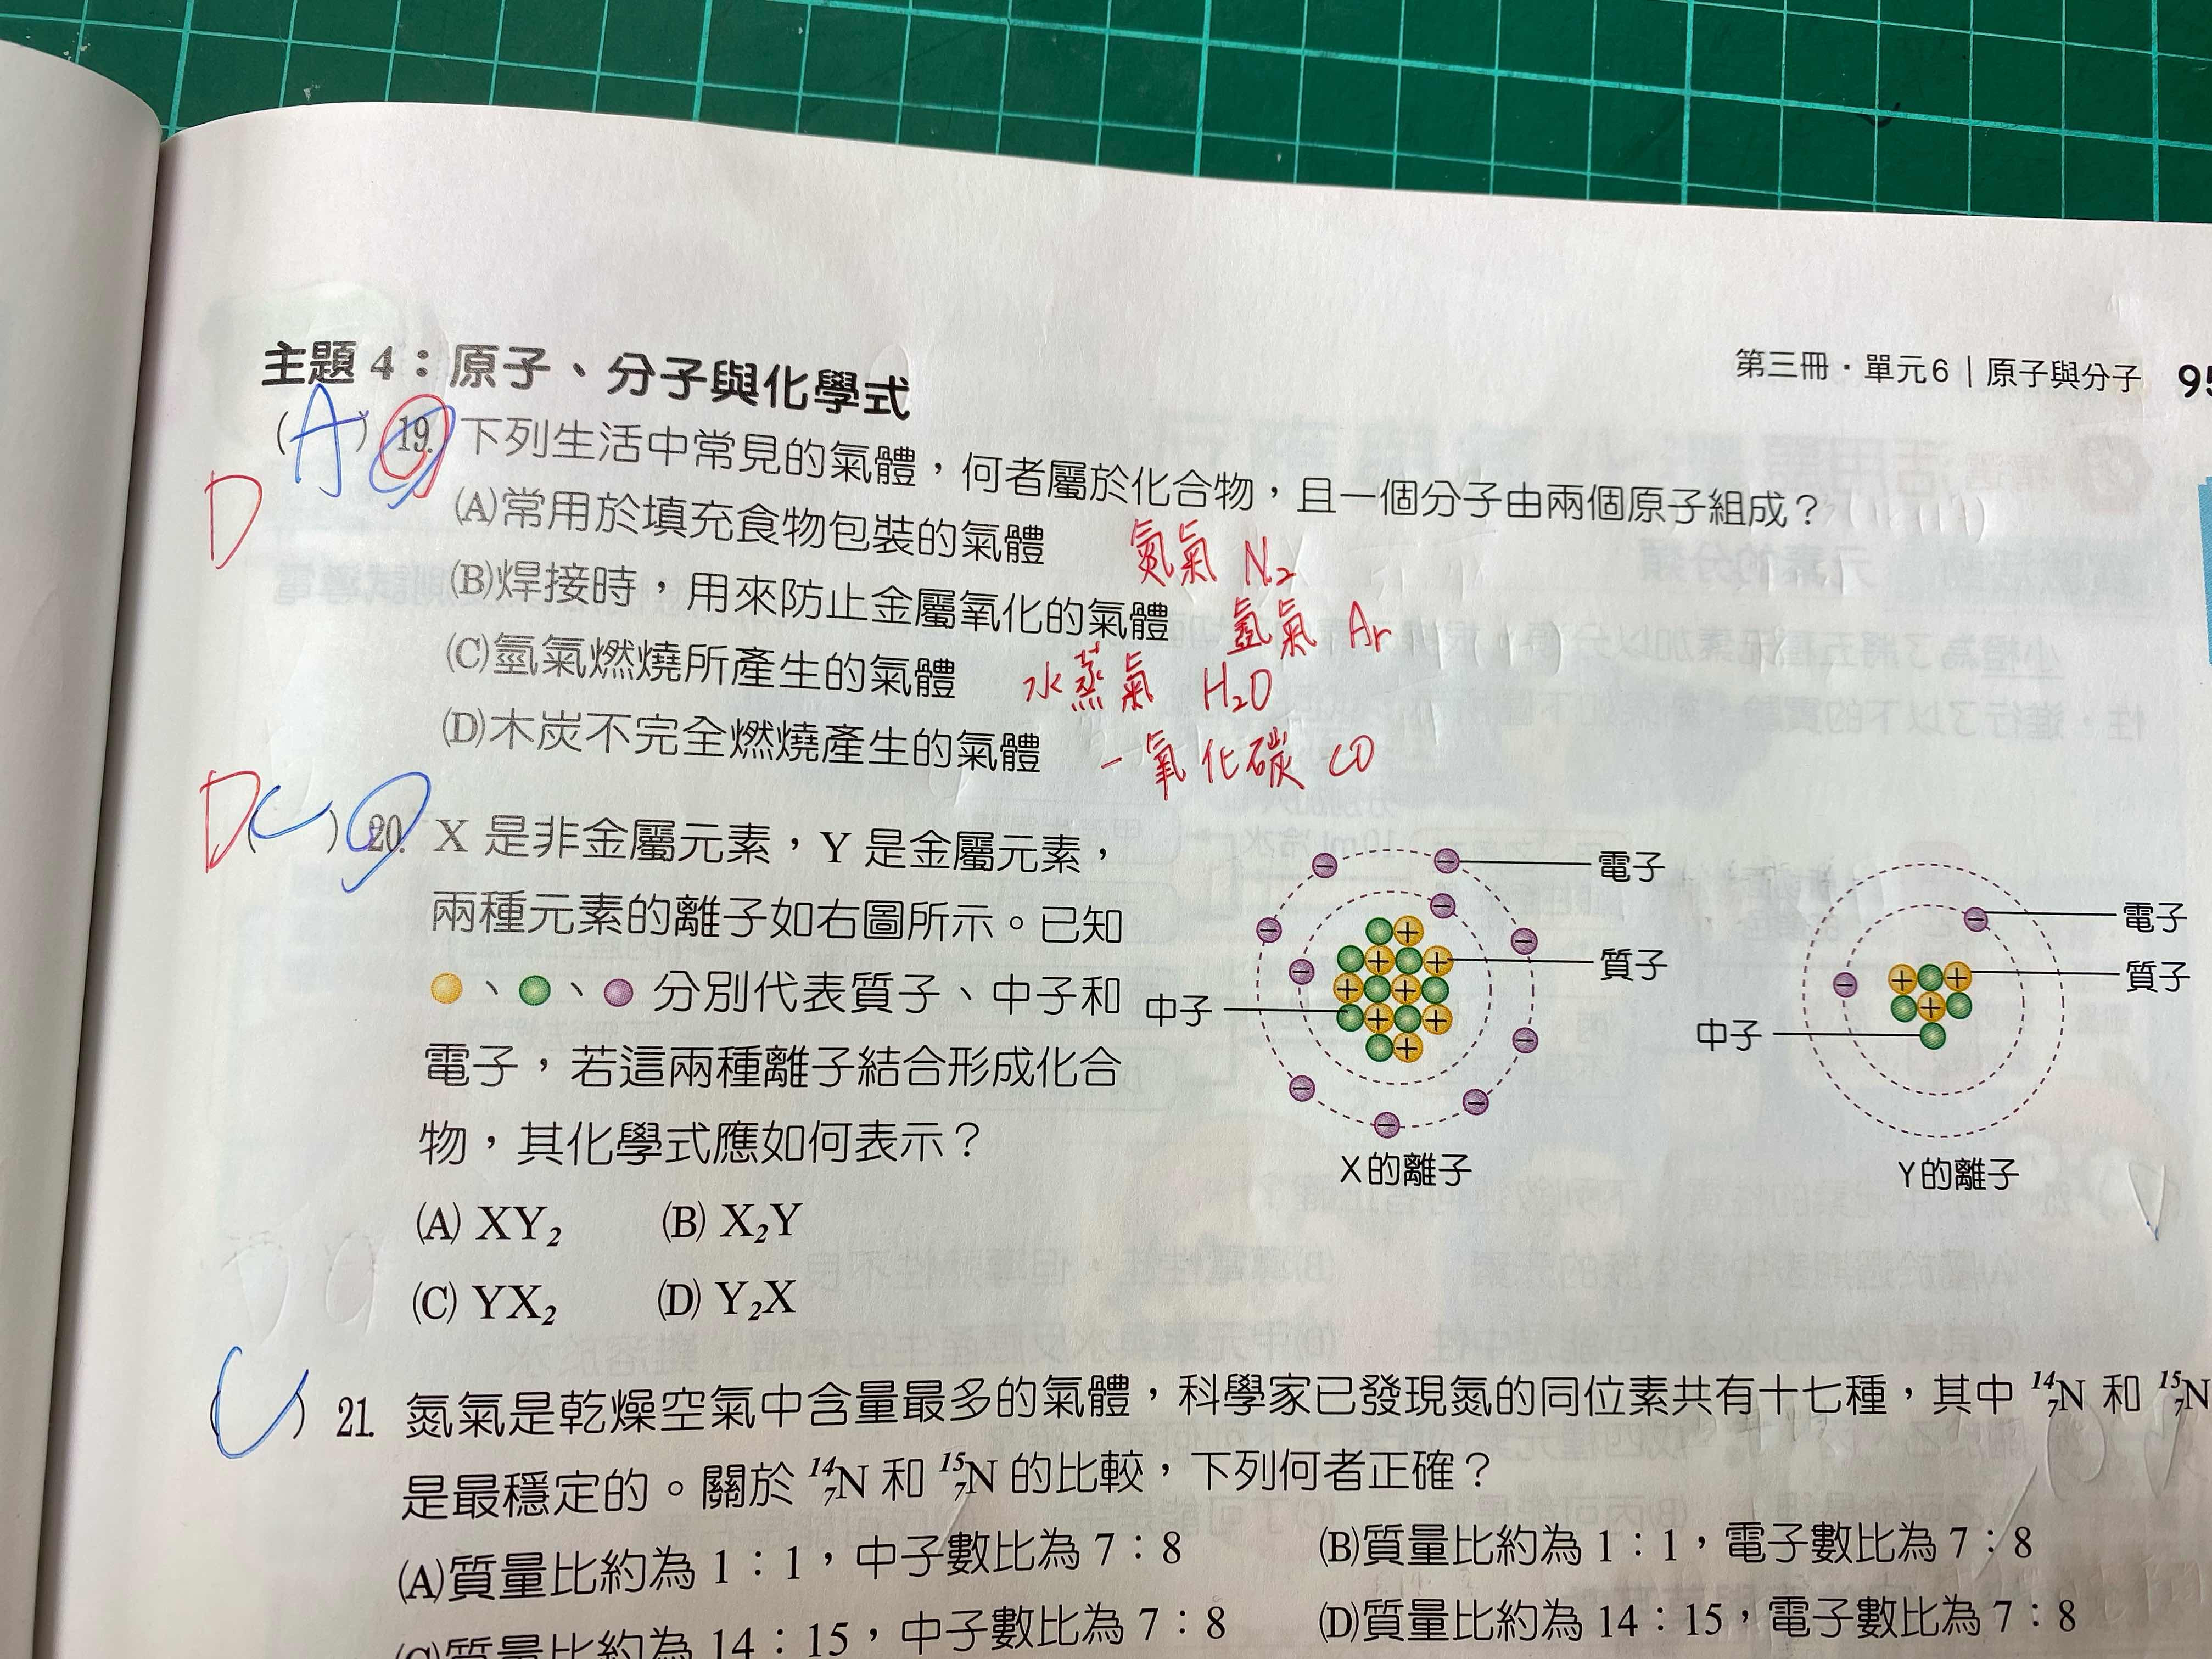 第三冊・單元6｜原子與分子
主題4：原子、分子與化學式
(A) 19. 下列生活中常見的氣體，何者屬於化合物，且一個分子由兩個原子組成？
D
(A)常用於填充食物包裝的氣體 氮氣 N₂
(B)焊接時，用來防止金屬氧化的氣體 氬氣 Ar
(C)氫氣燃燒所產生的氣體 水蒸氣 H₂O
(D)木炭不完全燃燒產生的氣體 一氧化碳 CO
D(C) 20. X 是非金屬元素，Y 是金屬元素，
兩種元素的離子如右圖所示。已知
、、分別代表質子、中子和
電子，若這兩種離子結合形成化合
物，其化學式應如何表示？
(A) XY₂ (B) X₂Y
(C) YX₂ (D) Y₂X
電子
質子
中子
X的離子
電子
質子
中子
Y的離子
(C) 21. 氮氣是乾燥空氣中含量最多的氣體，科學家已發現氮的同位素共有十七種，其中 ¹⁴₇N 和 ¹⁵₇N
是最穩定的。關於 ¹⁴₇N 和 ¹⁵₇N 的比較，下列何者正確？
(A)質量比約為 1：1，中子數比為 7：8 (B)質量比約為 1：1，電子數比為 7：8
(C)質量比約為 14：15，中子數比為 7：8 (D)質量比約為 14：15，電子數比為 7：8